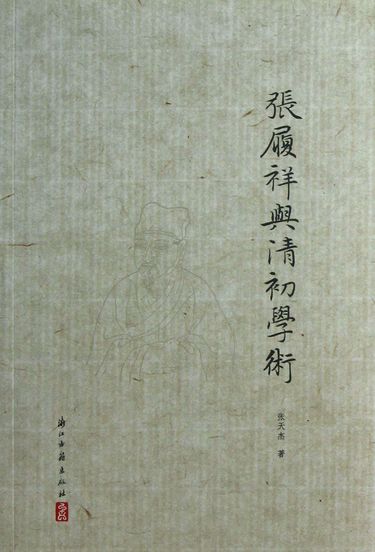 張履祥與清初學術
张天杰 著
浙江古籍出版社